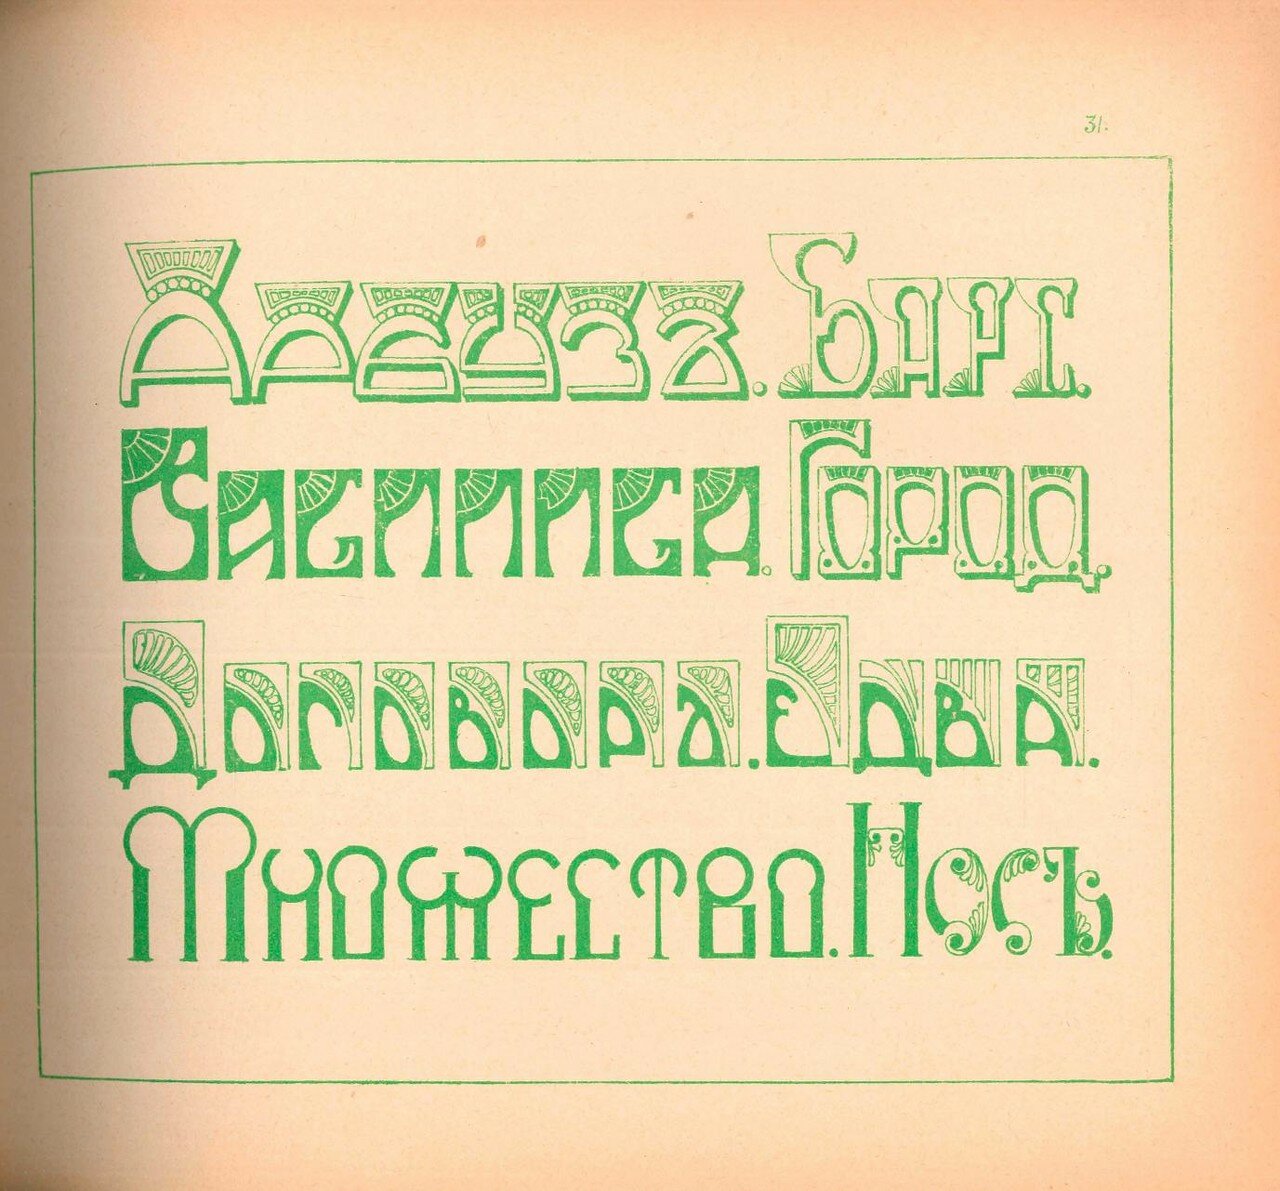 31.
Арбузъ. Барс.
Василиса. Город.
Договора. Едва.
Множество. Носъ.